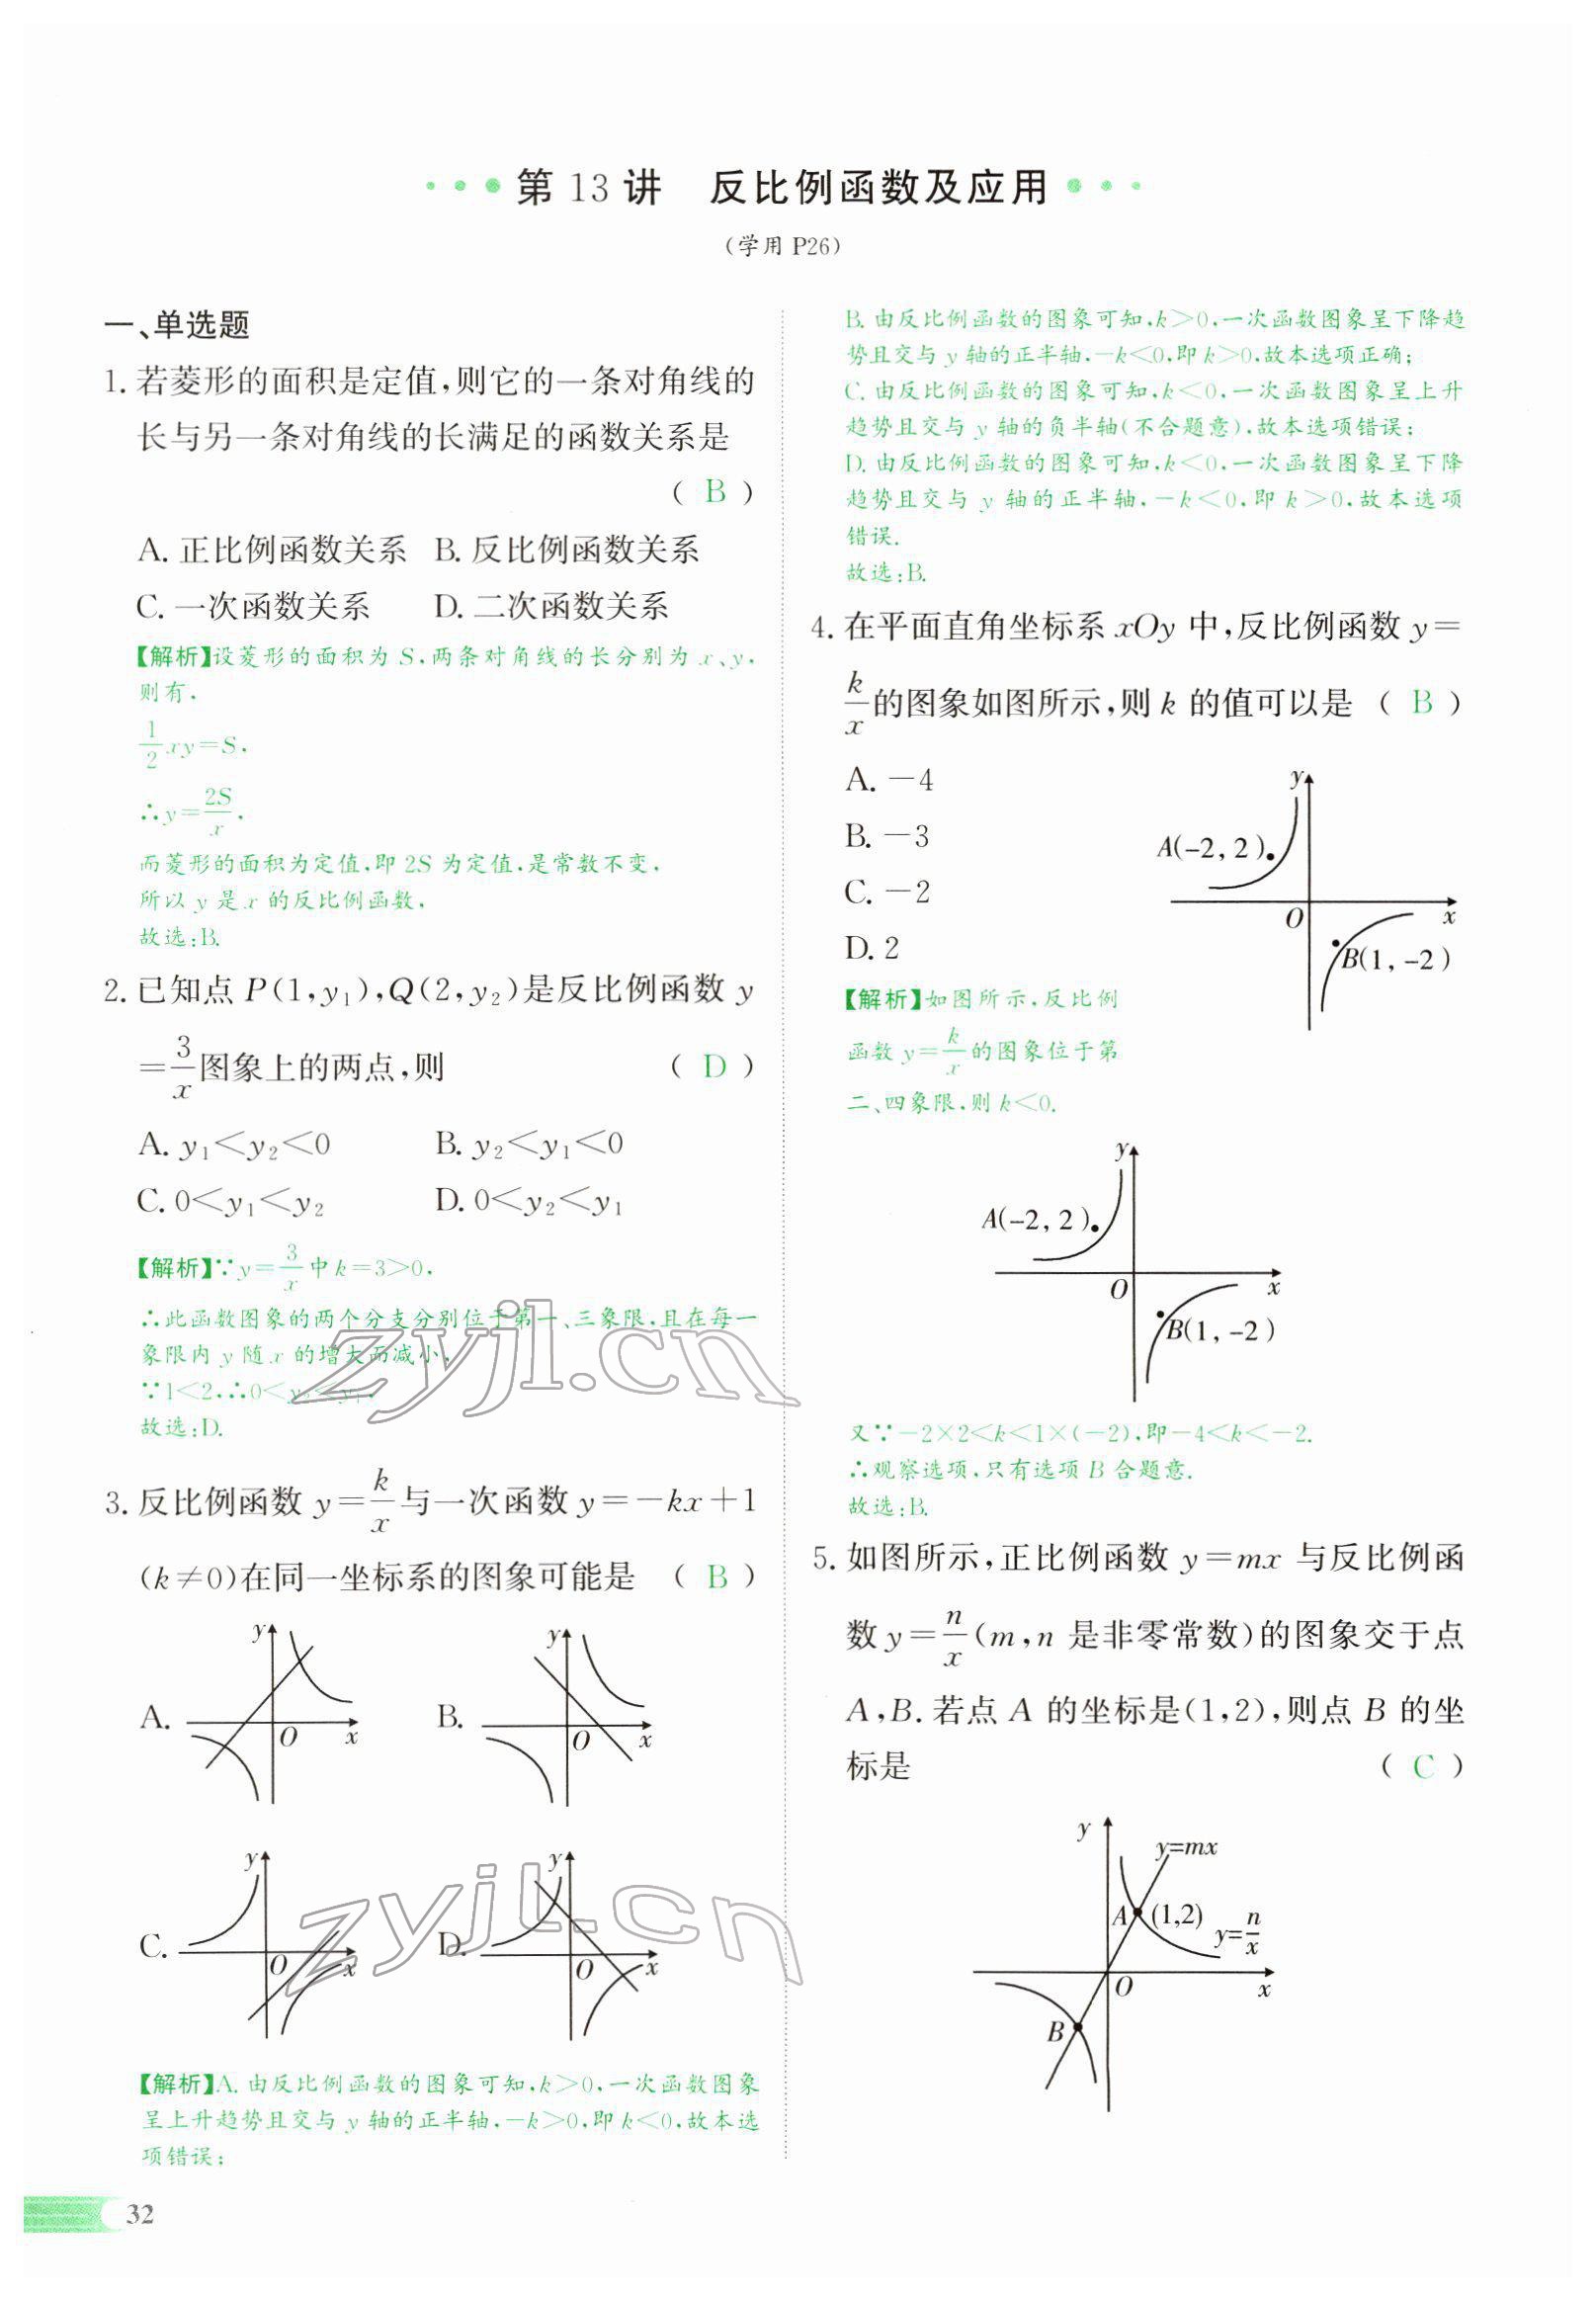 第 13 讲 反比例函数及应用
(学用 P26)
一、单选题
1. 若菱形的面积是定值,则它的一条对角线的
长与另一条对角线的长满足的函数关系是
( B )
A. 正比例函数关系 B. 反比例函数关系
C. 一次函数关系 D. 二次函数关系
【解析】设菱形的面积为 S,两条对角线的长分别为 x、y,
则有,
1/2 xy=S,
∴y=2S/x,
而菱形的面积为定值,即 2S 为定值,是常数不变,
所以 y 是 x 的反比例函数,
故选:B.
2. 已知点 P(1,y₁),Q(2,y₂)是反比例函数 y
=3/x 图象上的两点,则 ( D )
A. y₁<y₂<0 B. y₂<y₁<0
C. 0<y₁<y₂ D. 0<y₂<y₁
【解析】∵y=3/x 中 k=3>0,
∴此函数图象的两个分支分别位于第一、三象限,且在每一
象限内 y 随 x 的增大而减小,
∵1<2,∴0<y₂<y₁,
故选:D.
3. 反比例函数 y=k/x 与一次函数 y=-kx+1
(k≠0)在同一坐标系的图象可能是 ( B )
A. y O x B. y O x
C. y O x D. y O x
【解析】A. 由反比例函数的图象可知,k>0,一次函数图象
呈上升趋势且交与 y 轴的正半轴,-k>0,即 k<0,故本选
项错误;
B. 由反比例函数的图象可知,k>0,一次函数图象呈下降趋
势且交与 y 轴的正半轴,-k<0,即 k>0,故本选项正确;
C. 由反比例函数的图象可知,k<0,一次函数图象呈上升
趋势且交与 y 轴的负半轴(不合题意),故本选项错误;
D. 由反比例函数的图象可知,k<0,一次函数图象呈下降
趋势且交与 y 轴的正半轴,-k<0,即 k>0,故本选项
错误.
故选:B.
4. 在平面直角坐标系 xOy 中,反比例函数 y=
k/x 的图象如图所示,则 k 的值可以是 ( B )
A. -4
B. -3
C. -2
D. 2
y
A(-2, 2)
O x
B(1, -2)
【解析】如图所示,反比例
函数 y=k/x 的图象位于第
二、四象限,则 k<0.
y
A(-2, 2)
O x
B(1, -2)
又∵-2×2<k<1×(-2),即-4<k<-2.
∴观察选项,只有选项 B 合题意.
故选:B.
5. 如图所示,正比例函数 y=mx 与反比例函
数 y=n/x (m,n 是非零常数)的图象交于点
A,B. 若点 A 的坐标是(1,2),则点 B 的坐
标是 ( C )
y
y=mx
A (1,2)
y=n/x
O x
B
zyjl.cn
zyjl.cn
32